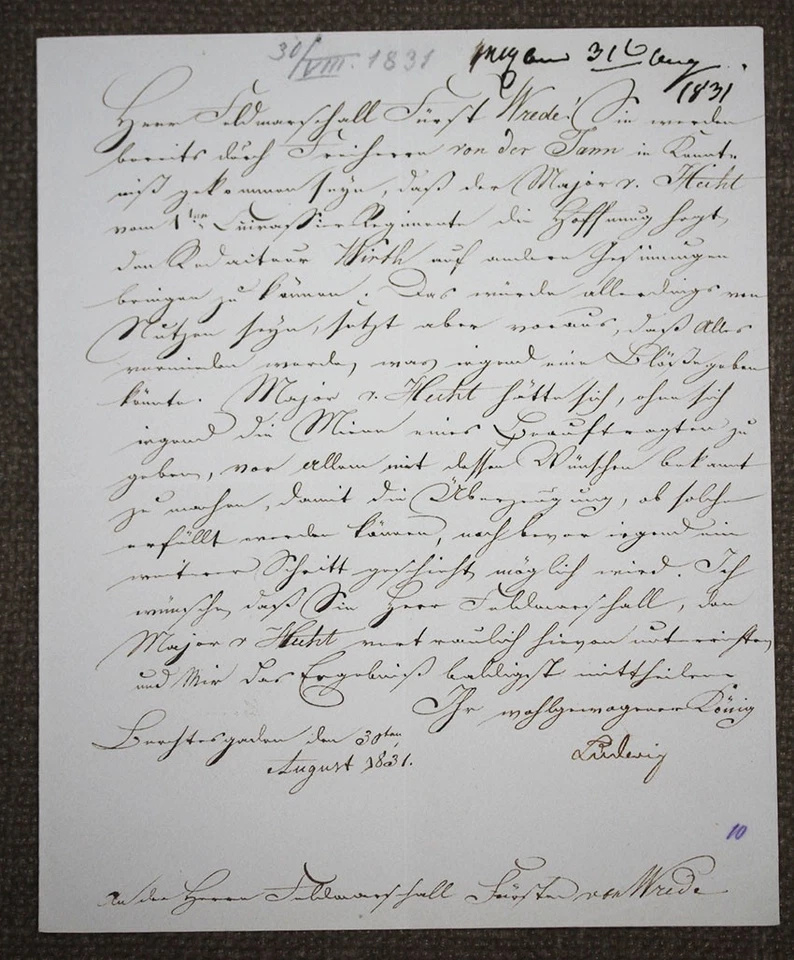 30/VIII. 1831
31 Aug
1831
Herr Feldmarschall Fürst Wrede! Sie werden
bereits durch Freiherrn von der Tann in Kennt-
niß gekommen seyn, daß der Major v. Hecht
vom 1ten Cuirassier Regimente die Hoffnung hegt,
den Redacteur Wirth auf andere Gesinnungen
bringen zu können. Das würde allerdings von
Nutzen seyn, setzt aber voraus, daß Alles
vermieden werde, was irgend eine Blöße geben
könnte. Major v. Hecht hätte sich, ohne sich
irgend die Miene eines Beauftragten zu
geben, vor Allem mit dessen Wünschen bekannt
zu machen, damit die Überzeugung, ob solche
erfüllt werden können, noch bevor irgend ein
weiterer Schritt geschieht möglich wird. Ich
wünsche, daß Sie Herr Feldmarschall, den
Major v Hecht vertraulich hievon unterrichten
und Mir das Ergebniß baldigst mittheilen
Ihr wohlgewogener König
Ludwig
Berchtesgaden den 30ten
August 1831.
10
An den Herrn Feldmarschall Fürsten von Wrede